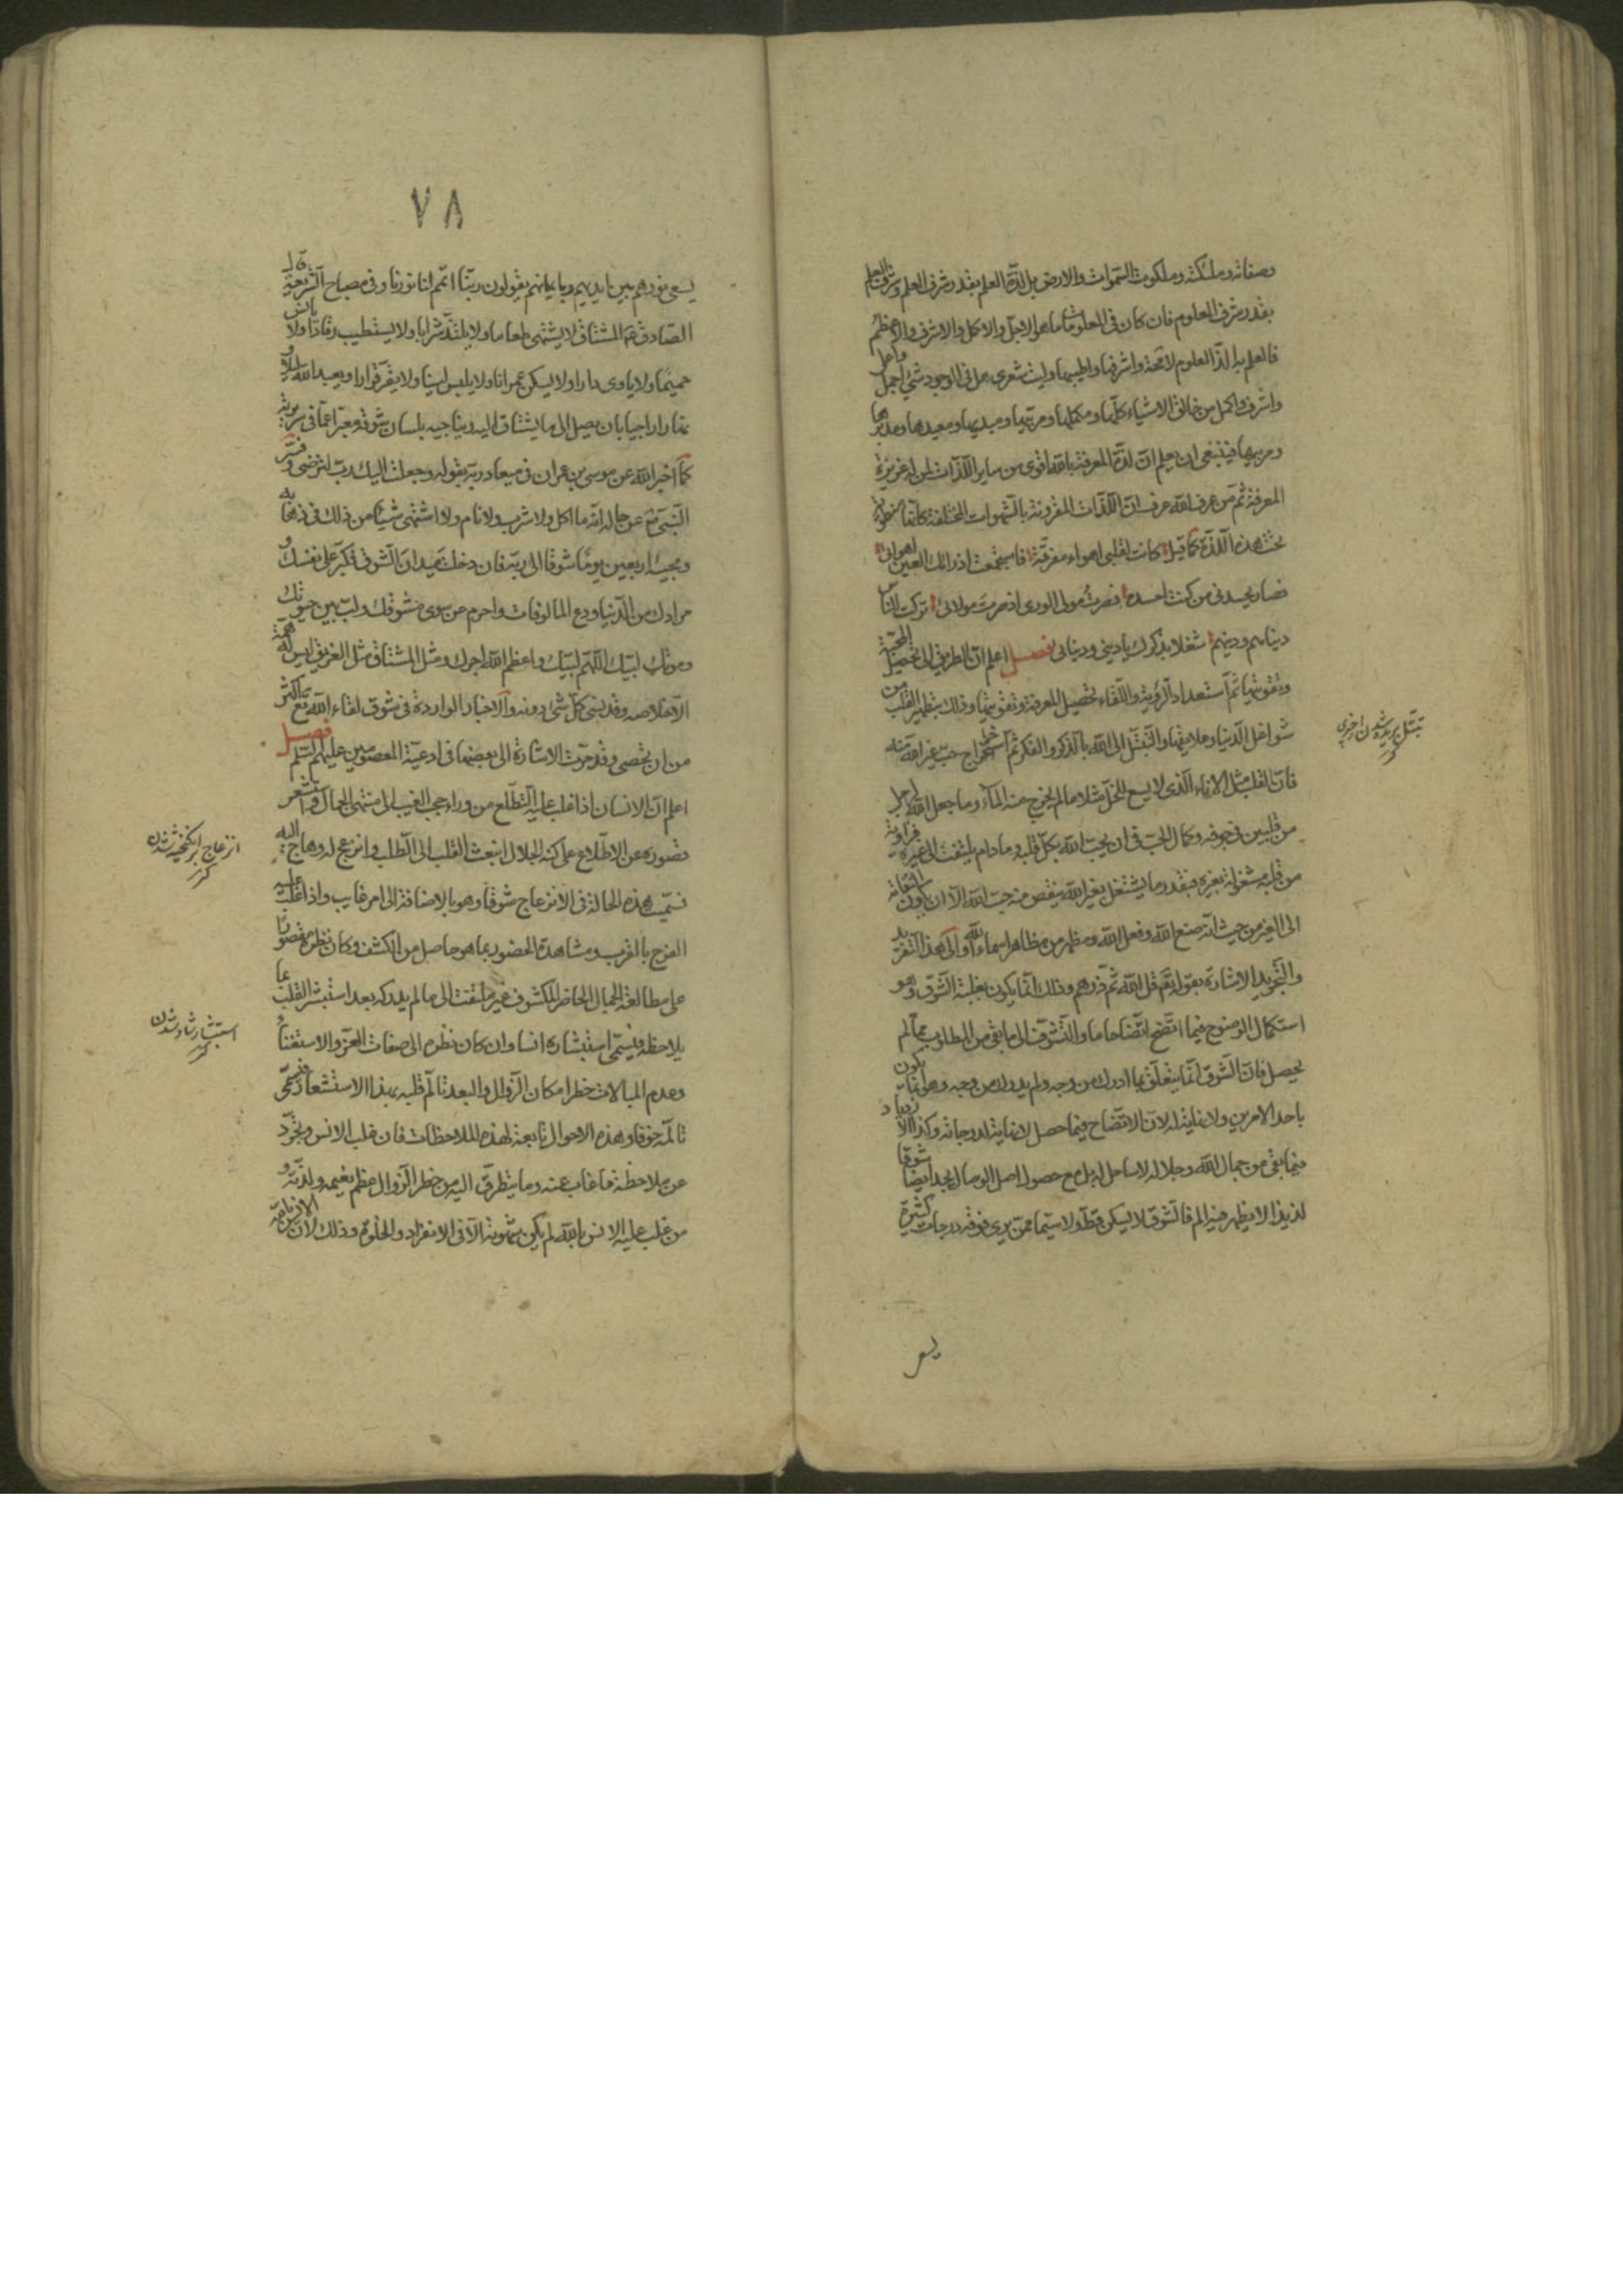 وصفاته وملائكته وملكوت السموات والارض بل لذة العلم بقدر شرف العلم وشرف العلم
بقدر شرف المعلوم فان كان في المعلومات ما هو الاجل والاكمل والاشرف والاعظم
فالعلم به الذ العلوم لا محة واشرفها واطيبها وليت شعري هل في الوجود شئ اجل واعلى
واشرف واكمل من خالق الاشياء كلها ومكملها ومزينها ومبديها ومعيدها ومدبرها
ومربيها فينبغي ان يعلم ان لذة المعرفة بالله اقوى من ساير اللذات لمن له غريزة
المعرفة ثم من عرف الله عرف ان اللذات المقرونة بالشهوات المختلفة كلها منطوية
تحت هذه اللذة كما قيل كانت لقلبي اهواء مفرقة فاستجمعت اذ رأتك العين اهوائي
فصار يحسدني من كنت احسده فصرت مولى الورى اذ صرت مولائي تركت للناس
دنياهم ودينهم شغلا بذكرك يا ديني ودنيائي فصل اعلم ان الطريق الى تحصيل المحبة
وتقويتها ثم استعداد الرؤية واللقاء تحصيل المعرفة وتقويتها وذلك بتطهير القلب من
شواغل الدنيا وعلايقها والتبتل الى الله بالذكر والفكر ثم استخراج حب غير الله منه
فان القلب مثل الاناء الذي لا يسع للخل مثلا ما لم يخرج منه الماء وما جعل الله لرجل
من قلبين في جوفه وكمال الحب في ان يحب الله بكل قلبه وما دام يلتفت الى غيره فزاوية
من قلبه مشغولة بغيره فبقدر ما يشتغل بغير الله ينقص منه حب الله الا ان يكون التفاته
الى الغير من حيث انه صنع الله وفعل الله ومظهر من مظاهر اسماء الله والى هذا التفريد
والتجريد الاشارة بقوله تعم قل الله ثم ذرهم وذلك انما يكون بغلبة الشوق وهو
استكمال الوضوح فيما اتضح اتضاحا ما والتشوق الى ما بقي من المطلوب مما لم
يحصل فان الشوق انما يتعلق بما ادرك من وجه ولم يدرك من وجه وهو انما يكون
باحد الامرين ولا نهاية له لان الاتضاح فيما حصل لا نهاية لدرجاته وكذا الازدياد
فيما بقي من جمال الله وجلاله لا ساحل له بل مع حصول اصل الوصال يجد ايضا شوقا
لذيذا لا يظهر فيه الم فالشوق لا يسكن قط ولا سيما ممن يرى فوقه درجات كثيرة
يسعى
تبتل بريده شدن از چيزى
كنز
٧٨
يسعى نورهم بين ايديهم وبايمانهم يقولون ربنا اتمم لنا نورنا وفي مصباح الشريعة قال
الصادق ع المشتاق لا يشتهي طعاما ولا يلتذ شرابا ولا يستطيب رقادا ولا يأنس
حميما ولا ياوى دارا ولا يسكن عمرانا ولا يلبس لينا ولا يقر قرارا ويعبد الله ليلا و
نهارا راجيا بان يصل الى ما يشتاق اليه ويناجيه بلسان شوقه معبرا عما في سريرته
كما اخبر الله عن موسى بن عمران في ميعاد ربه بقوله وعجلت اليك رب لترضى وفسر
النبي ص عن حاله انه ما اكل ولا شرب ولا نام ولا اشتهى شيئا من ذلك في ذهابه
ومجيئه اربعين يوما شوقا الى ربه فان دخلت ميدان الشوق فكبر على نفسك و
مرادك من الدنيا ودع المألوفات واحرم عن سوى مشوقك ولب بين حيوتك
وموتك لبيك اللهم لبيك واعظم الله اجرك ومثل المشتاق مثل الغريق ليس له همة
الا خلاصه وقد نسى كل شئ دونه والاخبار الواردة في شوق لقاء الله تع اكثر
من ان تحصى وقد مرت الاشارة الى بعضها في ادعية المعصومين عليهم السلم فصل
اعلم ان الانسان اذا غلب عليه التطلع من وراء حجب الغيب الى منتهى الجمال واستشعر
قصوره عن الاطلاع على كنه الجلال انبعث القلب الى الطلب وانزعج له وهاج اليه
تسميت هذه الحالة في الانزعاج شوقا وهو بالاضافة الى امر غايب واذا غلب عليه
الفرح بالقرب ومشاهدة الحضور بما هو حاصل من الكشف وكان نظره مقصورا
على مطالعة الجمال الحاضر المكشوف غير ملتفت الى ما لم يدركه بعد استبشر القلب بما
يلاحظه فيسمى استبشاره انسا وان كان نظره الى صفات العز والاستغناء و
وعدم المبالات خطر امكان الزوال والبعد تألم قلبه بهذا الاستشعار فيسمى
تالمه خوفا وهذه الاحوال تابعة لهذه الملاحظات فان غلب الانس وتجرد
عن ملاحظة ما غاب عنه وما يتطرق اليه من خطر الزوال عظم نعيمه ولذته و
من غلب عليه الانس بالله لم يكن شهوته الا في الانفراد والخلوة وذلك لان الانس بالله
انزعاج برانگيخته شدن
كنز
استبشار شاد شدن
كنز